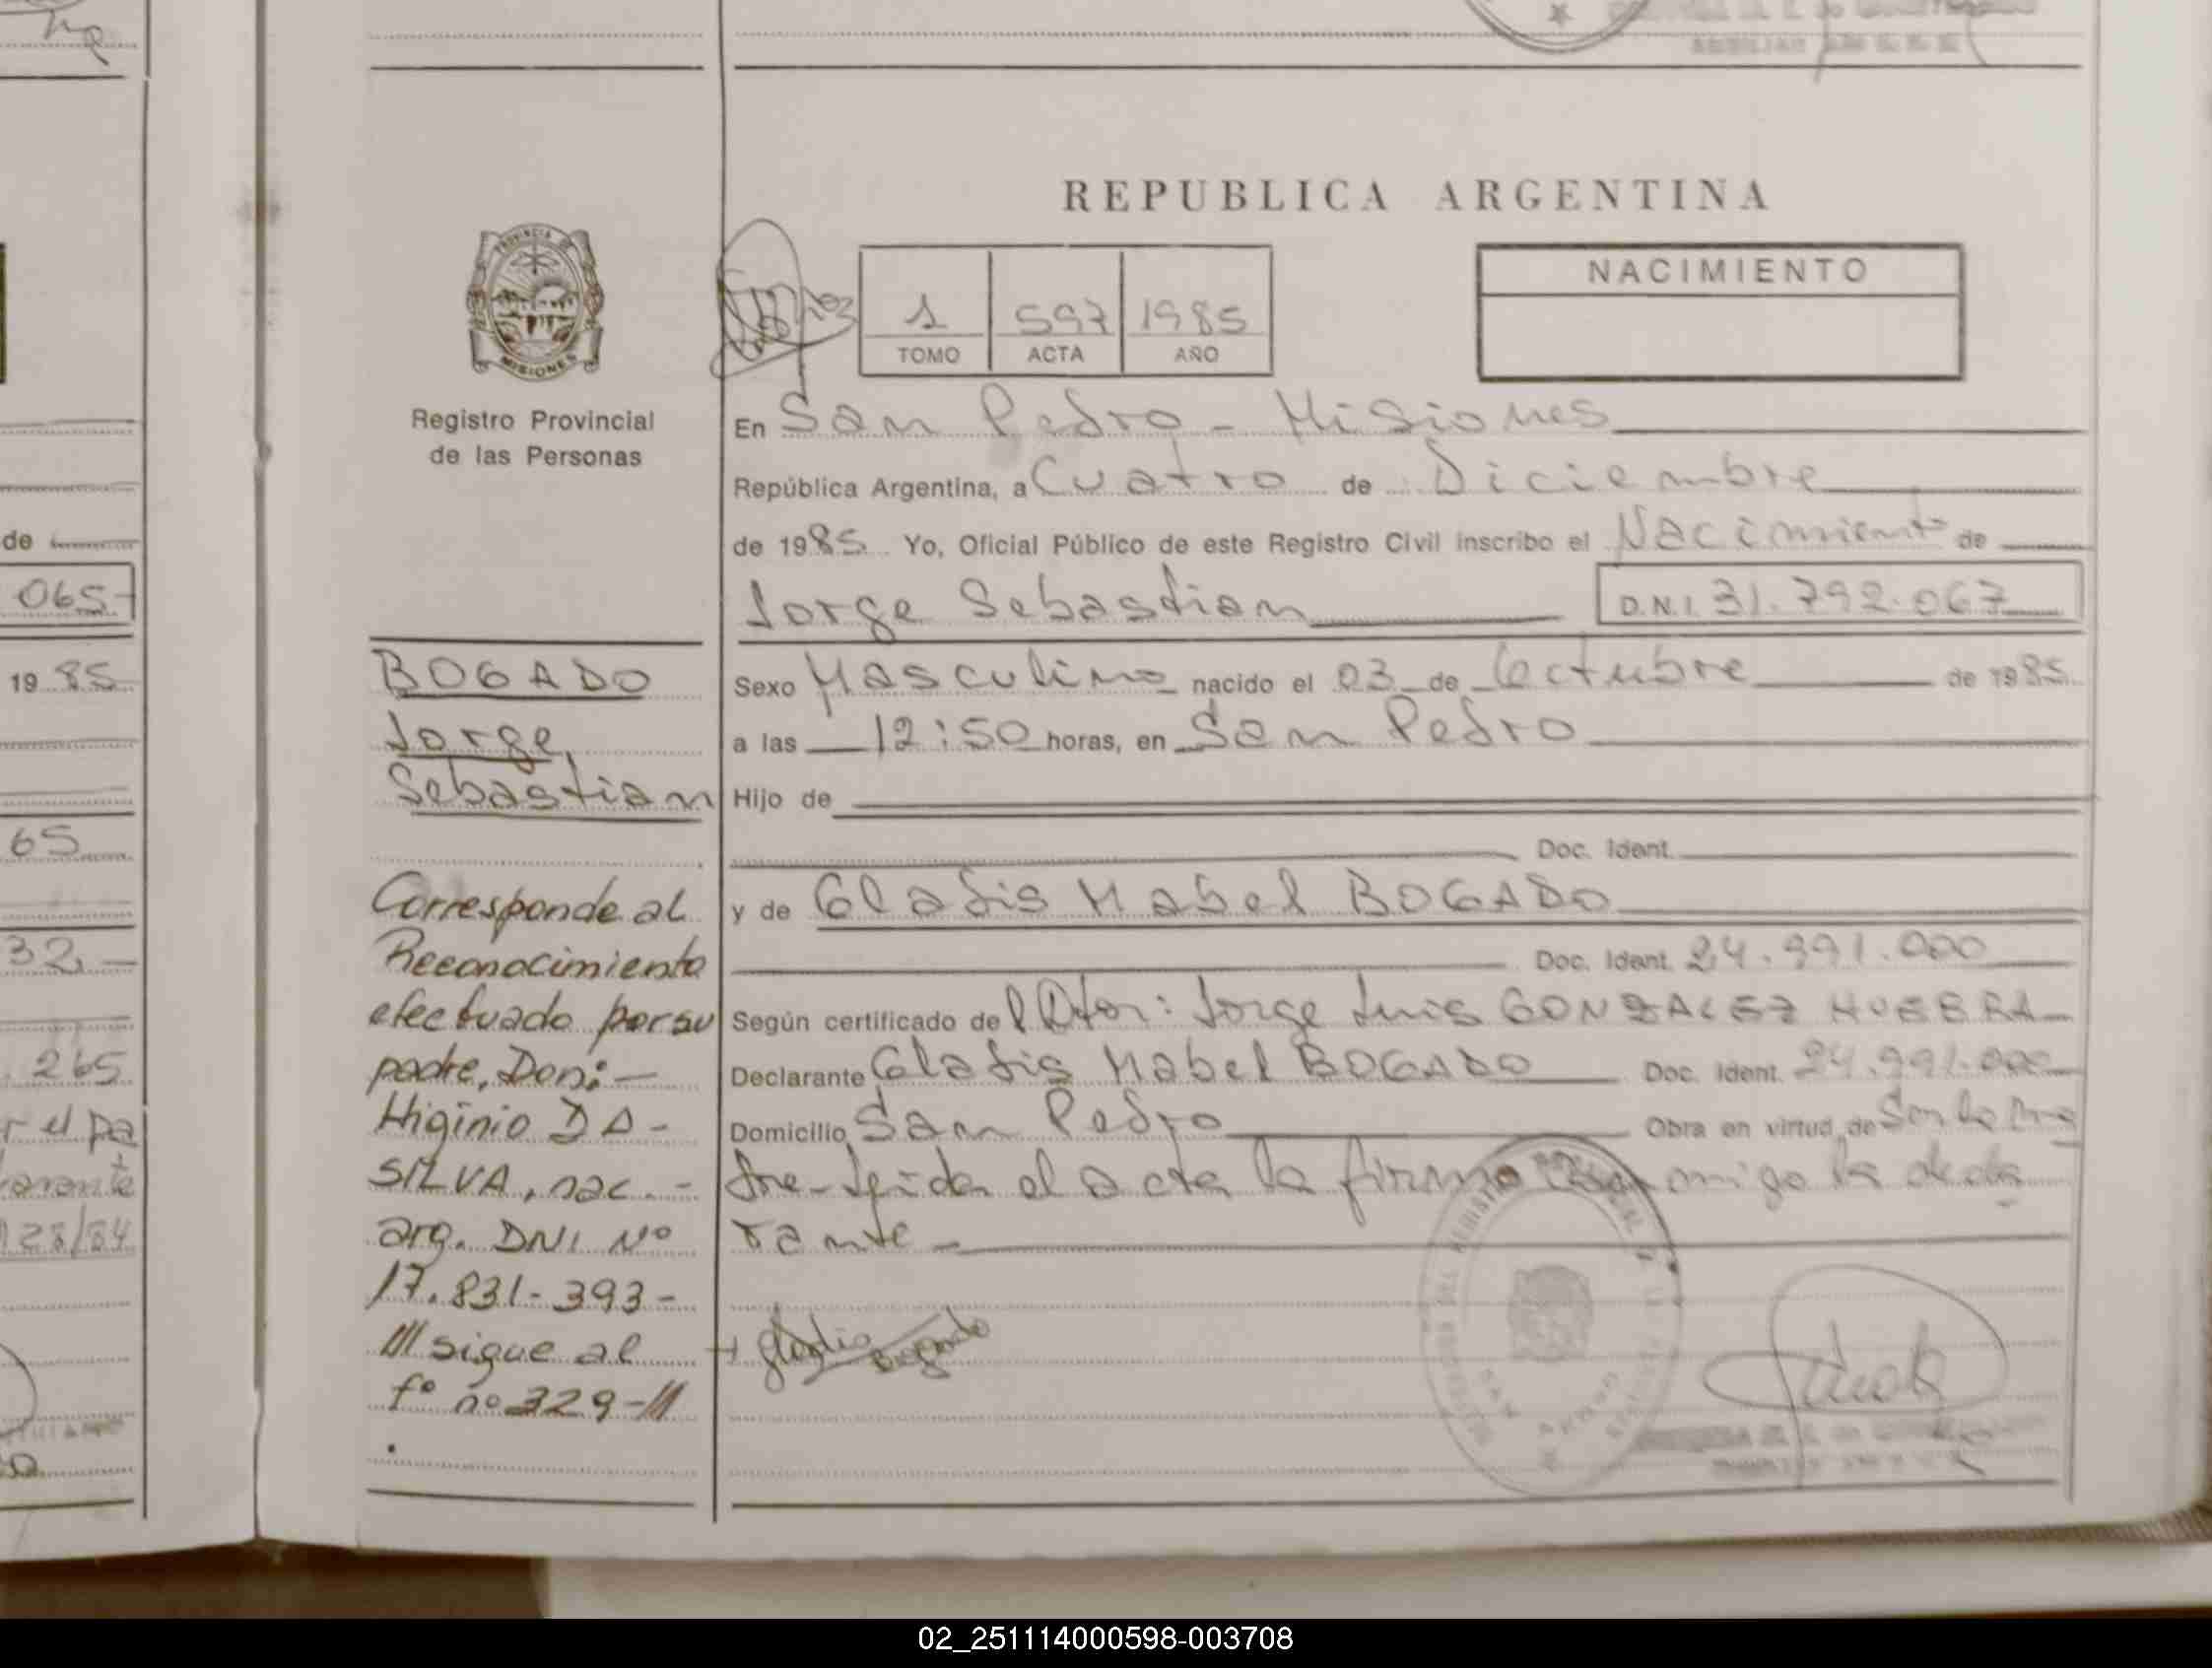 REPUBLICA ARGENTINA
PROVINCIA DE
MISIONES
Registro Provincial
de las Personas
1 597 1985
TOMO ACTA AÑO
NACIMIENTO
En San Pedro - Misiones
República Argentina, a Cuatro de Diciembre
de 1985 Yo, Oficial Público de este Registro Civil inscribo el Nacimiento de
Jorge Sebastian D.N.I. 31.792.067
Sexo Masculino nacido el 03 de Octubre de 1985
a las 12:50 horas, en San Pedro
Hijo de
Doc. Ident.
y de Gladis Mabel BOGADO
Doc. Ident. 24.991.000
Según certificado de l Dtor: Jorge Luis GONZALEZ HUEBRA
Declarante Gladis Mabel BOGADO Doc. Ident. 24.991.000
Domicilio San Pedro Obra en virtud de Ser la
el acta la firma conmigo la decla
rante -
Gladis Bogado
BOGADO
Jorge
Sebastian
Corresponde al
Reconocimiento
efectuado por su
padre, Don: -
Higinio DA -
SILVA, nac. -
arg. DNI Nº
17.831-393-
/// sigue al
fº nº 329-///
de
065
1985
65
32,-
265
r el pa
larante
128/84
02_251114000598-003708